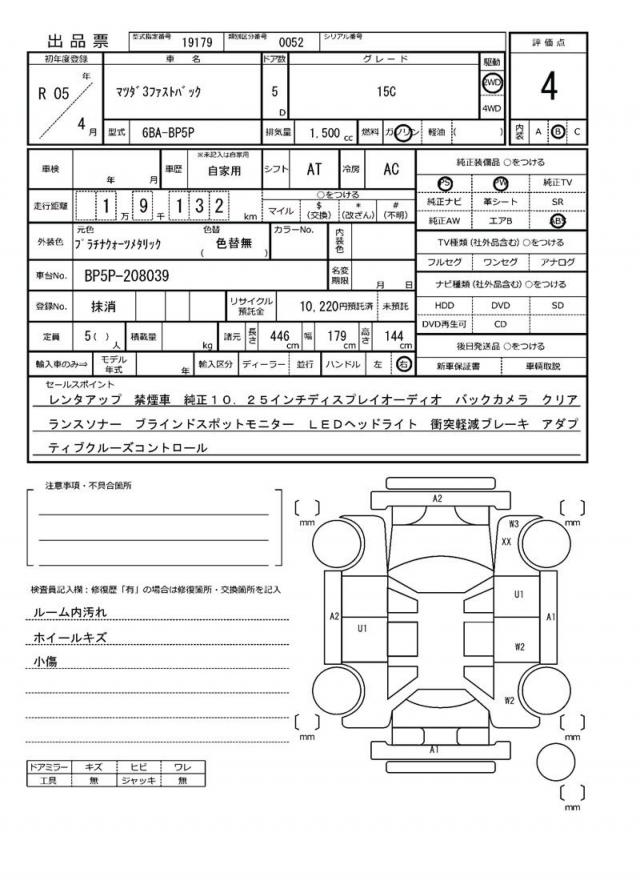 出品票 型式指定番号 19179 類別区分番号 0052 シリアル番号
評価点
初年度登録 車名 ドア数 グレード 駆動
R 05 年 4 月 マツダ3ファストバック 5 D 15C 2WD 4WD
4
型式 6BA-BP5P 排気量 1,500 cc 燃料 ガソリン 軽油 ( )
内装 A B C
車検 年 月 車歴 ※未記入は自家用 自家用 シフト AT 冷房 AC
純正装備品 ○をつける
PS PW 純正TV
走行距離 1 万 9 千 1 3 2 km
○をつける
マイル $ (交換) * (改ざん) # (不明)
純正ナビ 革シート SR
純正AW エアB ABS
外装色 元色 プラチナクォーツメタリック 色替 ( 色替無 ) カラーNo. 内装色
TV種類 (社外品含む) ○をつける
フルセグ ワンセグ アナログ
車台No. BP5P-208039 名変期限 月 日
ナビ種類 (社外品含む) ○をつける
登録No. 抹消 リサイクル預託金 10,220円預託済 未預託
HDD DVD SD
DVD再生可 CD
定員 5( ) 人 積載量 kg 諸元 長さ 446 cm 幅 179 cm 高さ 144 cm
後日発送品 ○をつける
輸入車のみ⇒ モデル年式 年 輸入区分 ディーラー 並行 ハンドル 左 右
新車保証書 車輌取説
セールスポイント
レンタアップ 禁煙車 純正10.25インチディスプレイオーディオ バックカメラ クリア
ランスソナー ブラインドスポットモニター LEDヘッドライト 衝突軽減ブレーキ アダプ
ティブクルーズコントロール
注意事項・不具合箇所
検査員記入欄：修復歴「有」の場合は修復箇所・交換箇所を記入
ルーム内汚れ
ホイールキズ
小傷
ドアミラー キズ ヒビ ワレ
工具 無 ジャッキ 無
A2
mm
mm
W3
XX
A2
U1
U1
A1
W2
W2
mm
mm
A1
mm